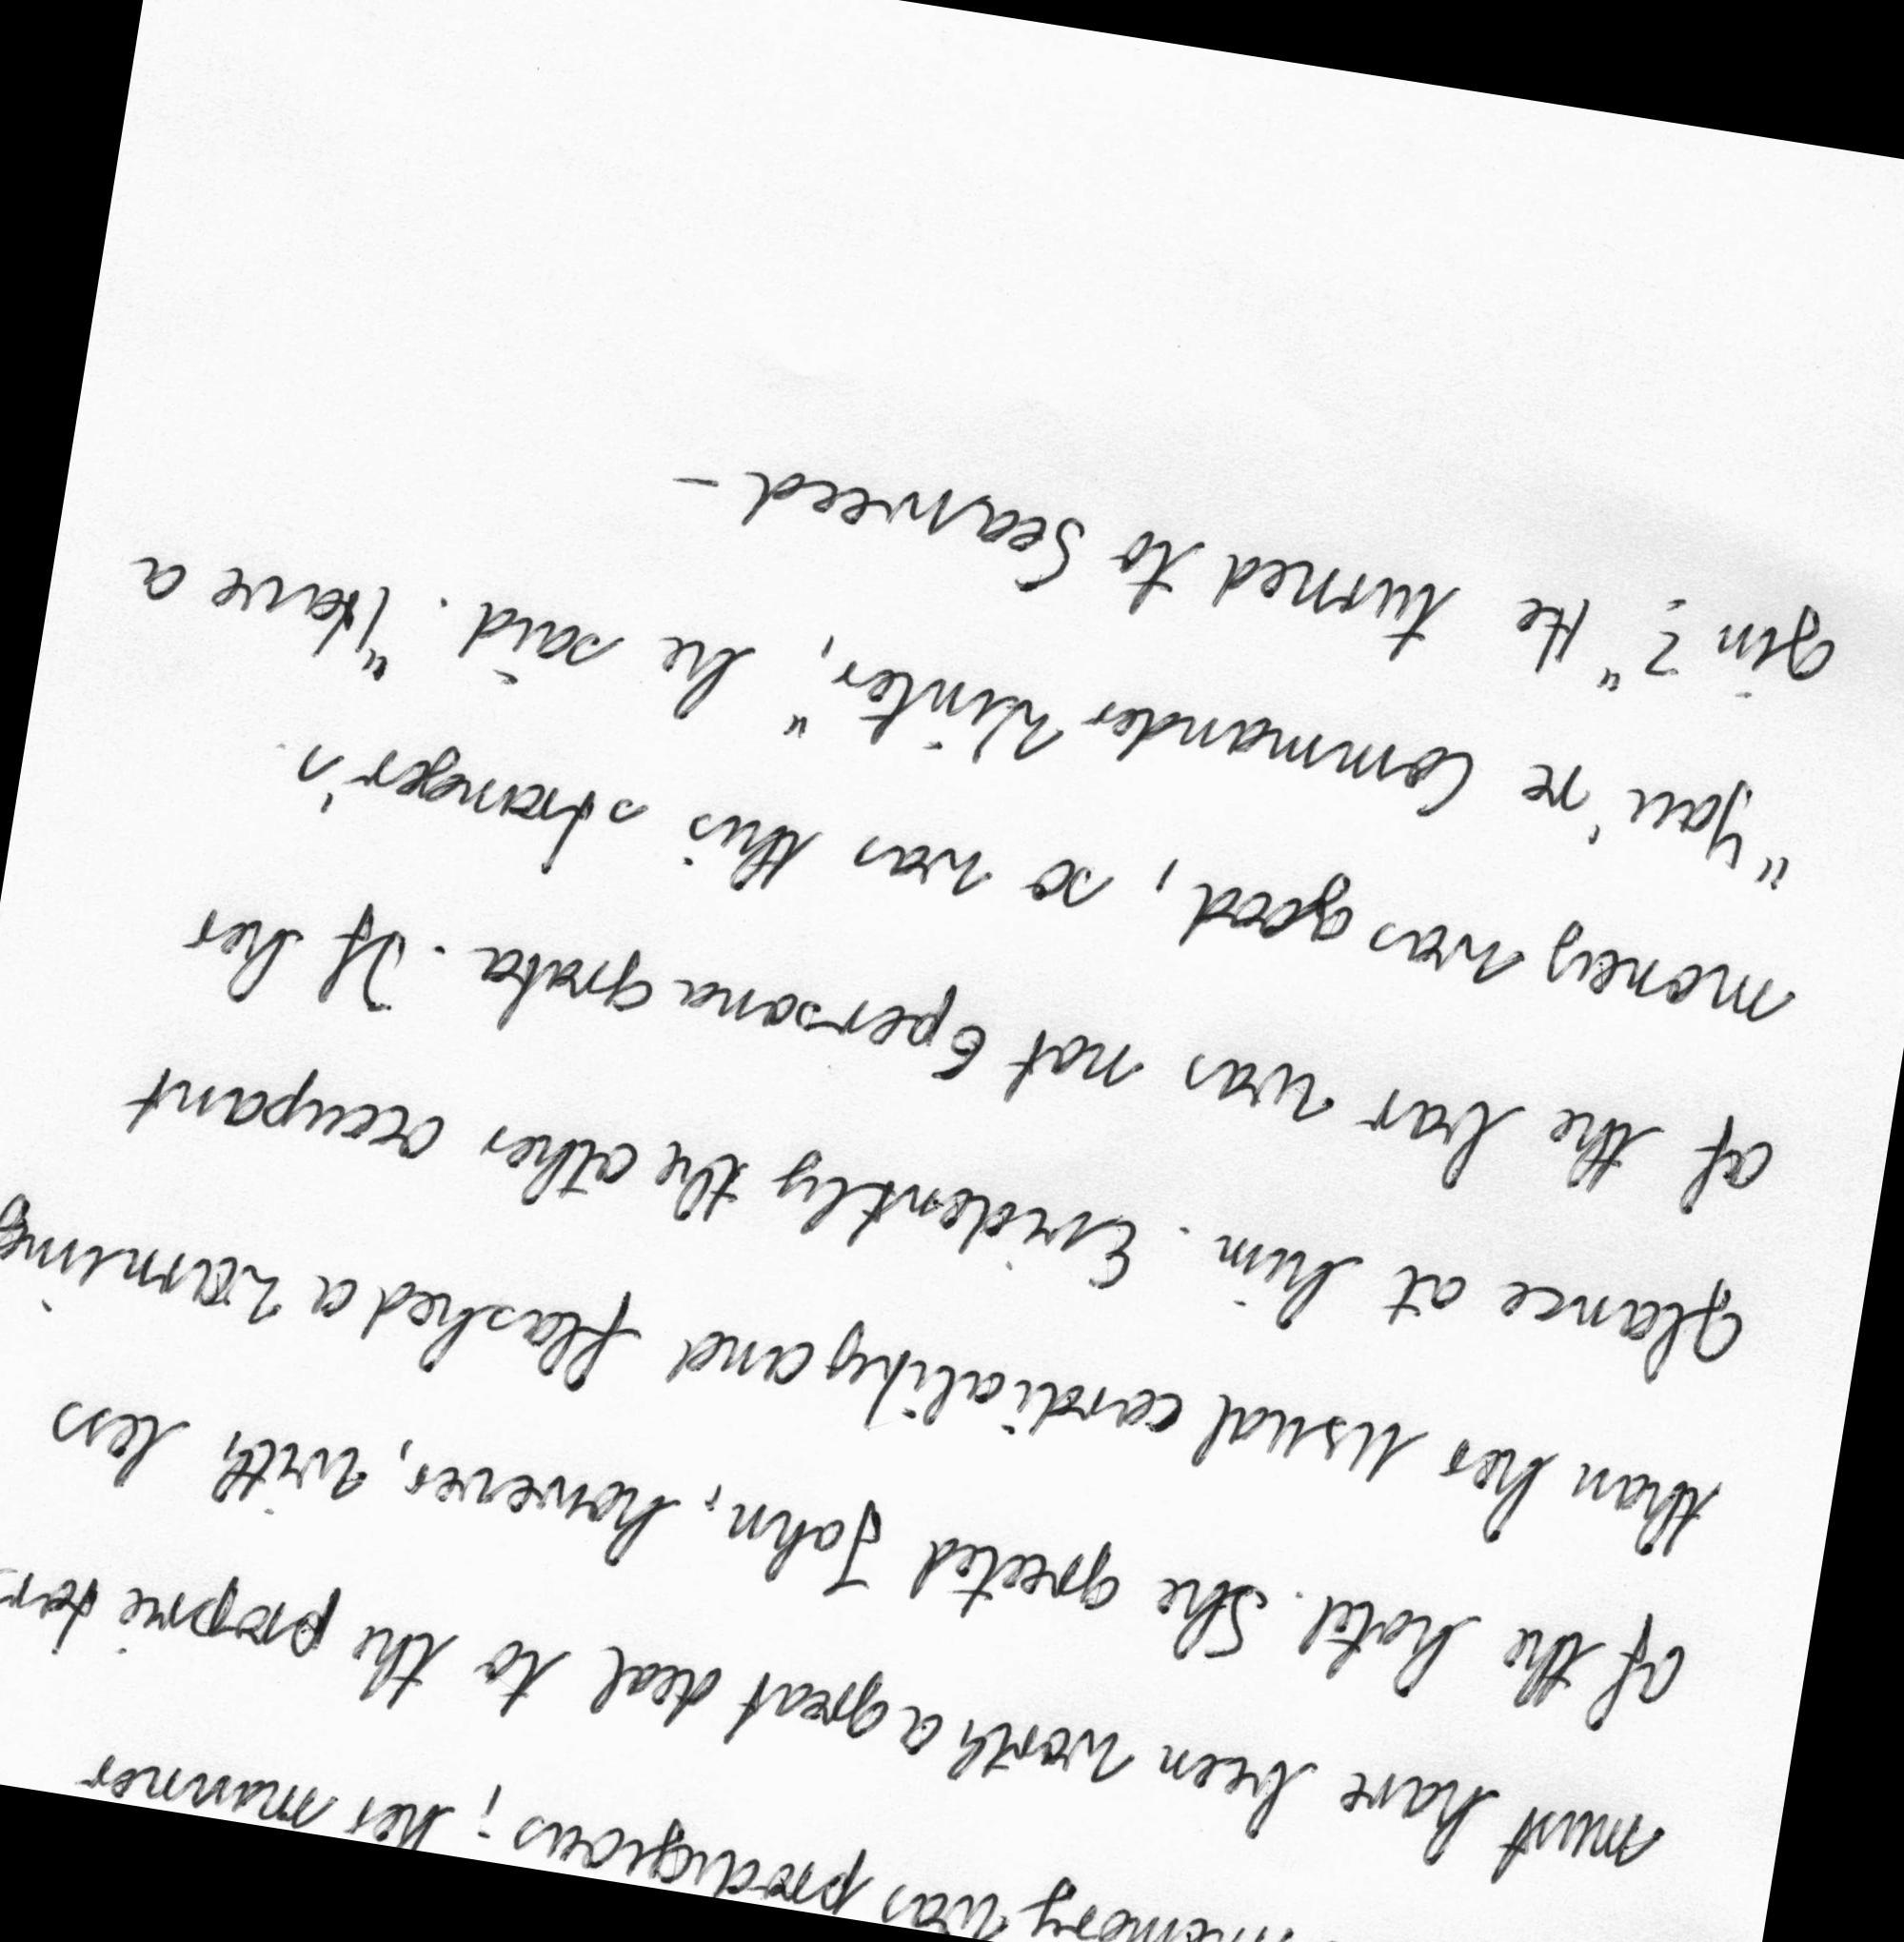 memory was prodigious; her manner
must have been worth a great deal to the proprietor
of the hotel. She greeted John, however, with less
than her usual cordiality and flashed a warning
glance at him. Evidently the other occupant
of the bar was not persona grata. If her
money was good, so was this stranger's.
"You're Commander Winter," he said. "Have a
gin?" He turned to Seaweed -